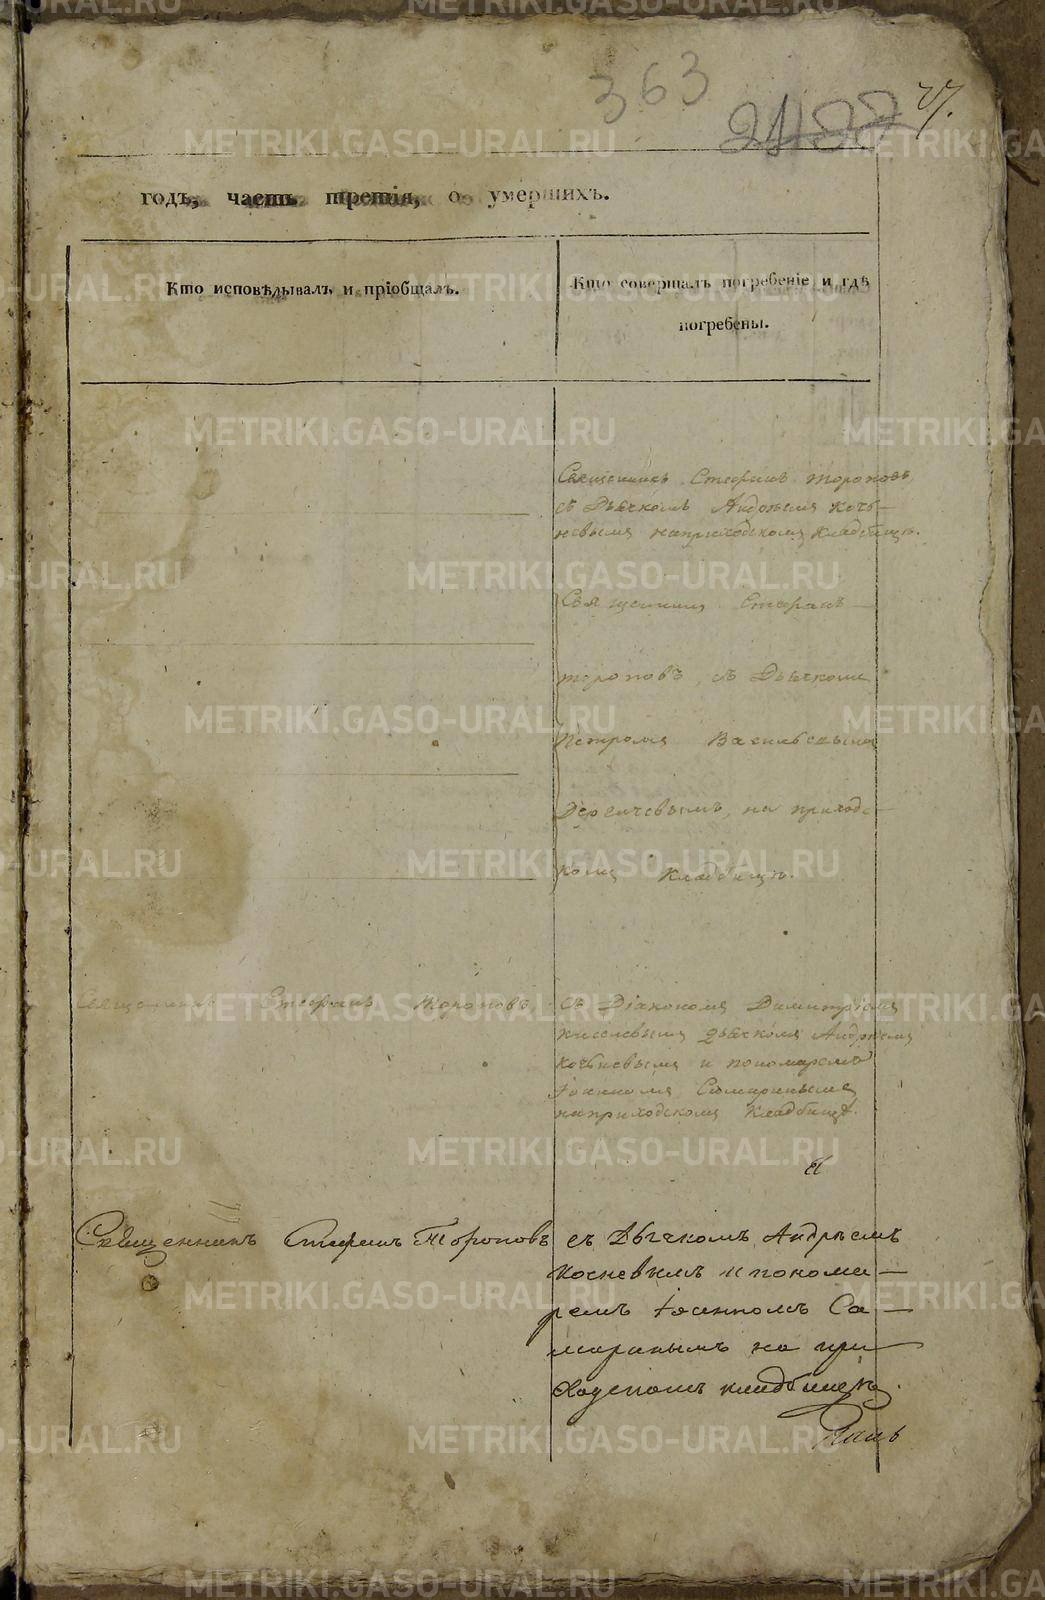 363
27.
годъ, часть третія, о умершихъ.
Кто исповѣдывалъ и пріобщалъ.
Кто совершалъ погребеніе и гдѣ
погребены.
Священникъ Стефанъ Тороповъ
съ Дьячкомъ Андреемъ Кочь-
невымъ на приходскомъ кладбищѣ.
Священникъ Стефанъ
Тороповъ, съ Дьячкомъ
Петромъ Васильевымъ
на приходс-
комъ кладбищѣ.
Священникъ Стефанъ Тороповъ
съ Діакономъ Димитріемъ
Киселевымъ дьячкомъ Андреемъ
Кочьневымъ и пономаремъ
Іоанномъ Самаринымъ
на приходскомъ кладбищѣ.
Священникъ Стефанъ Тороповъ
съ Дьячкомъ Андреемъ
Косневымъ и понома-
ремъ Іоанномъ Са-
маринымъ на при
ходскомъ кладбищѣ.
METRIKI.GASO-URAL.RU